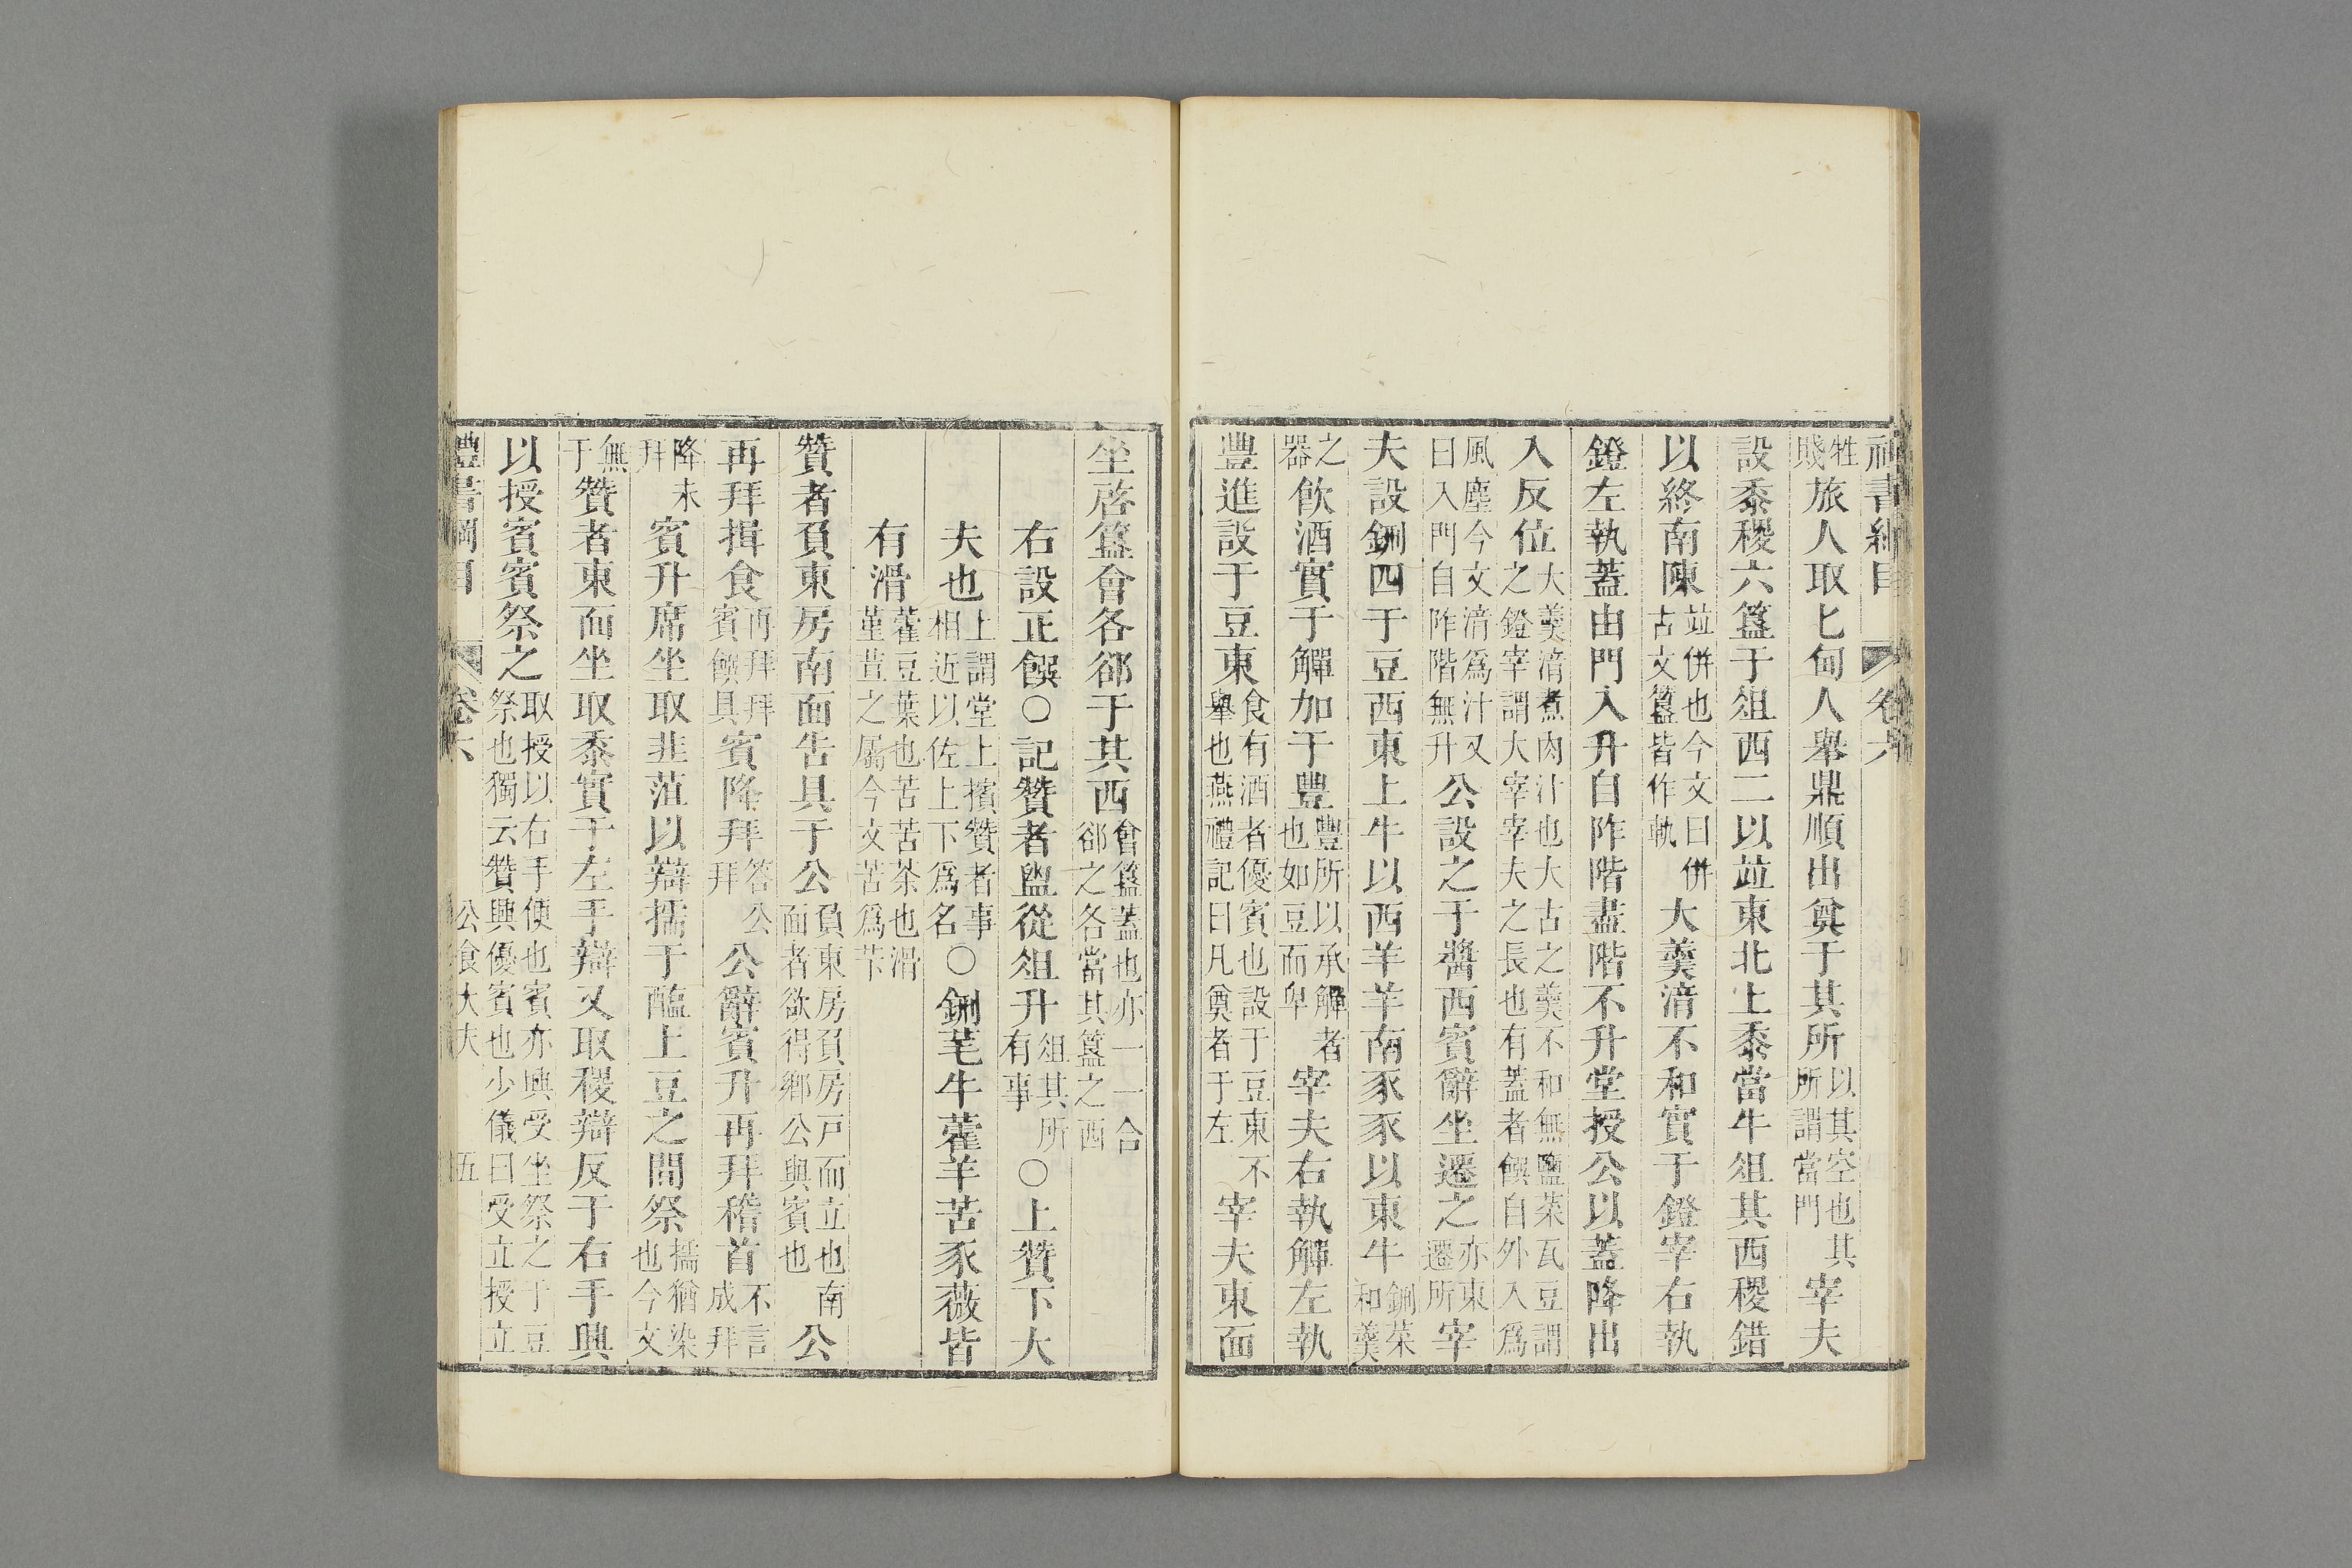 禮書綱目 卷六
牲賤旅人取匕甸人舉鼎順出奠于其所以其空也其所謂當門宰夫
設黍稷六簋于俎西二以竝東北上黍當牛俎其西稷錯
以終南陳竝併也今文曰併古文簋皆作軌大羹湆不和實于鐙宰右執
鐙左執蓋由門入升自阼階盡階不升堂授公以蓋降出
入反位大羹湆煮肉汁也大古之羹不和無鹽菜瓦豆謂之鐙宰謂大宰宰夫之長也有蓋者饌自外入爲
風塵今文湆爲汁又曰入門自阼階無升公設之于醬西賓辭坐遷之亦東遷所宰
夫設鉶四于豆西東上牛以西羊羊南豕豕以東牛鉶菜和羹
之器飲酒實于觶加于豐豐所以承觶者也如豆而卑宰夫右執觶左執
豐進設于豆東食有酒者優賓也設于豆東不舉也燕禮記曰凡奠者于左宰夫東面
坐啓簋會各郤于其西會簋蓋也亦一一合郤之各當其簋之西
右設正饌○記贊者盥從俎升俎其所有事○上贊下大
夫也上謂堂上擯贊者事相近以佐上下爲名○鉶芼牛藿羊苦豕薇皆
有滑藿豆葉也苦苦荼也滑堇荁之屬今文苦爲芐
贊者負東房南面告具于公負東房負房戸而立也南面者欲得鄉公與賓也公
再拜揖食再拜拜賓饌具賓降拜答公拜公辭賓升再拜稽首不言成拜
降未拜賓升席坐取韭菹以辯擩于醢上豆之間祭擩猶染也今文
無于贊者東面坐取黍實于左手辯又取稷辯反于右手興
以授賓賓祭之取授以右手便也賓亦興受坐祭之于豆祭也獨云贊興優賓也少儀曰受立授立
禮書綱目 卷六 公食大夫 五